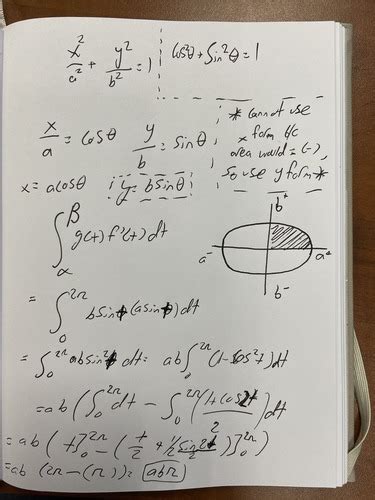 x²/a² + y²/b² = 1
cos²θ + sin²θ = 1
x/a = cosθ y/b = sinθ
x = acosθ y = bsinθ
* cannot use
x form b/c
area would = (-),
so use y form *
∫_α^β g(t) f'(t) dt
b⁺
a⁻ a⁺
b⁻
= ∫_0^{2π} bsint (asint) dt
= ∫_0^{2π} absin²t dt = ab ∫_0^{2π} (1-cos²t) dt
= ab (∫_0^{2π} dt - ∫_0^{2π} (1+cos2t / 2) dt
= ab (t]_0^{2π} - (t/2 + 1/2 sin2t / 2)]_0^{2π})
= ab (2π - (π)) = abπ